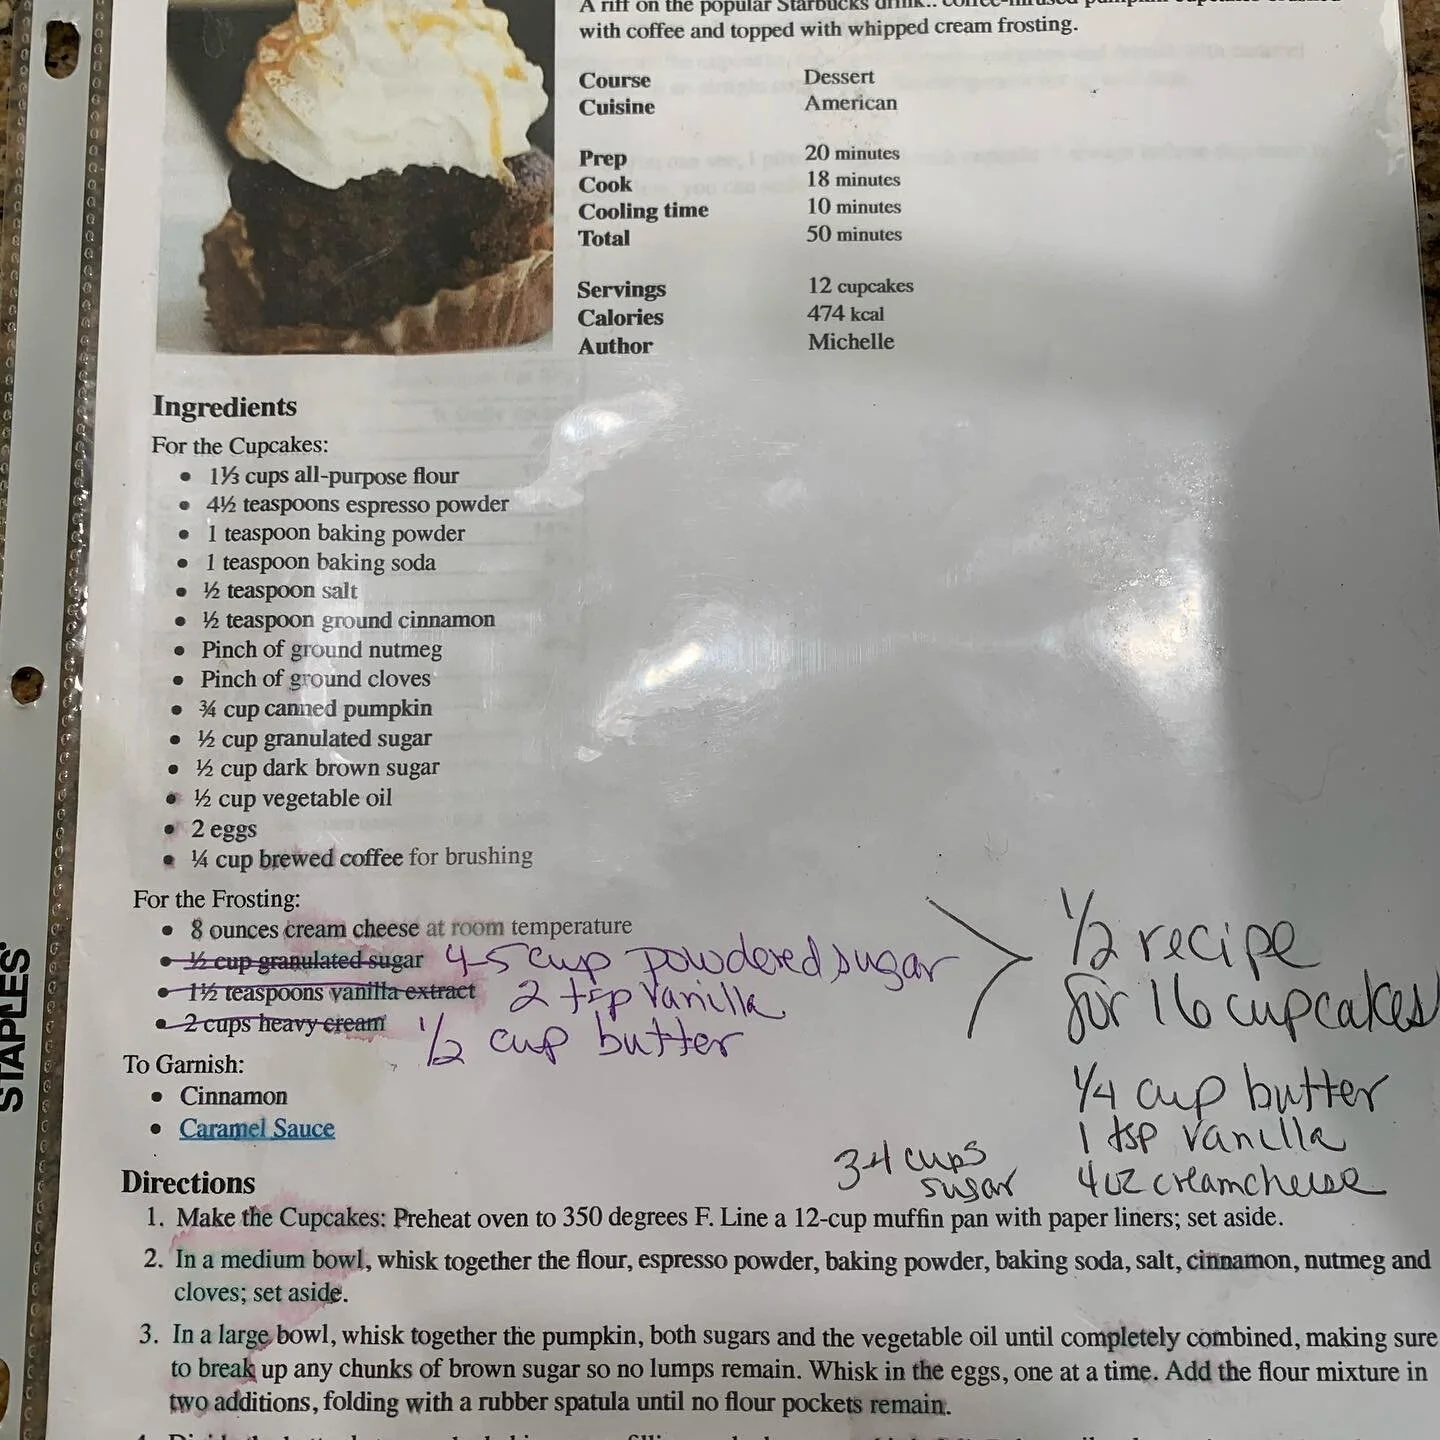 A riff on the popular Starbucks drink.. coffee-infused pumpkin cupcakes
with coffee and topped with whipped cream frosting.
Course Dessert
Cuisine American
Prep 20 minutes
Cook 18 minutes
Cooling time 10 minutes
Total 50 minutes
Servings 12 cupcakes
Calories 474 kcal
Author Michelle
Ingredients
For the Cupcakes:
• 1⅓ cups all-purpose flour
• 4½ teaspoons espresso powder
• 1 teaspoon baking powder
• 1 teaspoon baking soda
• ½ teaspoon salt
• ½ teaspoon ground cinnamon
• Pinch of ground nutmeg
• Pinch of ground cloves
• ¾ cup canned pumpkin
• ½ cup granulated sugar
• ½ cup dark brown sugar
• ½ cup vegetable oil
• 2 eggs
• ¼ cup brewed coffee for brushing
For the Frosting:
• 8 ounces cream cheese at room temperature
• ½ cup granulated sugar 4-5 cup powdered sugar
• 1½ teaspoons vanilla extract 2 tsp vanilla
• 2 cups heavy cream 1/2 cup butter
1/2 recipe
for 16 cupcakes
1/4 cup butter
1 tsp vanilla
4 oz creamcheese
3-4 cups
sugar
To Garnish:
• Cinnamon
• Caramel Sauce
Directions
1. Make the Cupcakes: Preheat oven to 350 degrees F. Line a 12-cup muffin pan with paper liners; set aside.
2. In a medium bowl, whisk together the flour, espresso powder, baking powder, baking soda, salt, cinnamon, nutmeg and
cloves; set aside.
3. In a large bowl, whisk together the pumpkin, both sugars and the vegetable oil until completely combined, making sure
to break up any chunks of brown sugar so no lumps remain. Whisk in the eggs, one at a time. Add the flour mixture in
two additions, folding with a rubber spatula until no flour pockets remain.
STAPLES